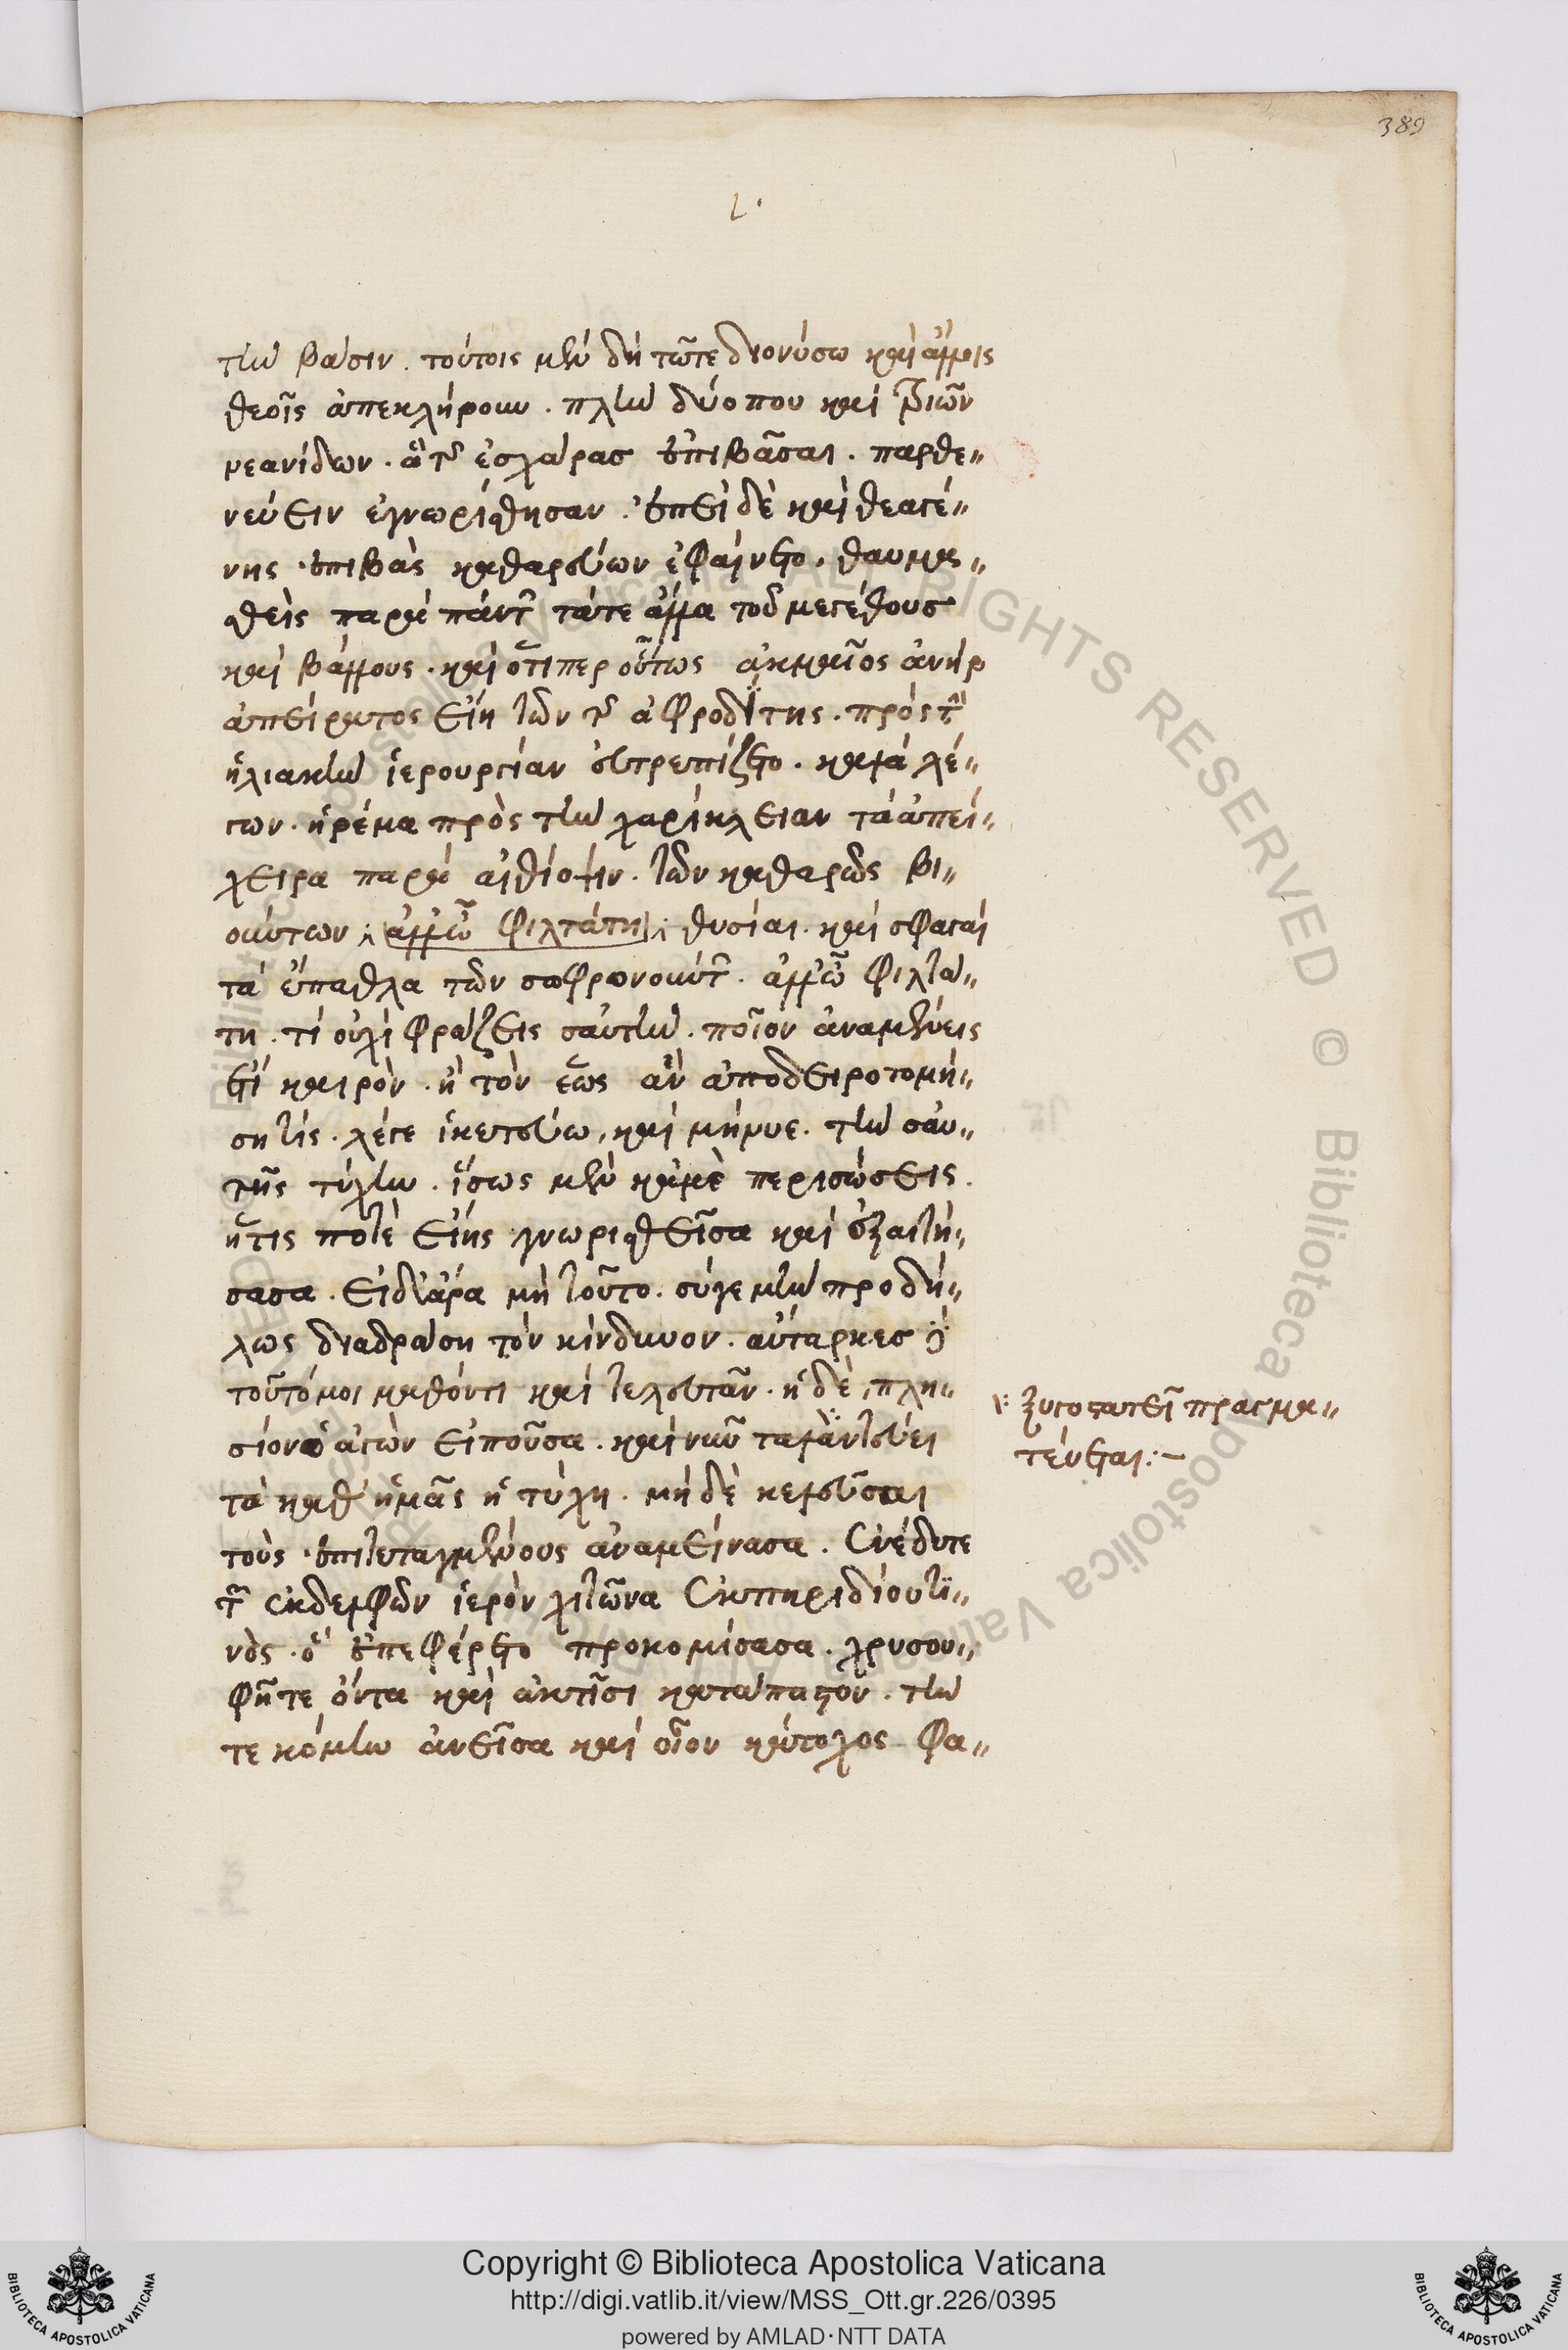 389
ι·
τὴν βάσιν. τούτοις μὲν δὴ τῶτε διονύσω καὶ ἄλλοις
θεοῖς ἀπεκλήρουν. πλὴν δύο που καὶ τριῶν
νεανίδων. ἃ τῆς ἐσχάρασ ἐπιβᾶσαι. παρθε〃
νεύειν ἐγνωρίσθησαν. ἐπεὶ δὲ καὶ θεαγέ〃
νης ἐπιβὰς καθαρεύων ἐφαίνετο. θαυμα〃
σθεὶς παρὰ πάντων τάτε ἄλλα τοῦ μεγέθουσ
καὶ κάλλους. καὶ ὅτιπερ οὕτως ἀκμαῖος ἀνήρ
ἀπείρατος εἴη τῶν τῆς ἀφροδίτης. πρὸς τὴν
ἡλιακὴν ἱερουργίαν εὐτρεπίζετο. καταλέ〃
γων. ἠρέμα πρὸς τὴν χαρίκλειαν τάἀπεί〃
χειρα παρὰ αἰθίοψιν. τῶν καθαρῶς βι〃
ούντων ἀλλ' ὦ φιλτάτη θυσίαι. καὶ σφαγαὶ
τὰ ἔπαθλα τῶν σωφρονούντων. ἀλλ' ὦ φιλτά〃
τη. τί οὐχὶ φράζεις σαυτὴν. ποῖον ἀναμένεις
ἔτι καιρὸν. ἢ τὸν ἕως ἂν ἀποδειροτομή〃
ση τίς. λέγε ἱκετεύω, καὶ μήνυε. τὴν σαυ〃
τῆς τύχην. ἴσως μὲν κἀμὲ περισώσεις.
ἥτις ποτὲ εἴης γνωρισθεῖσα καὶ ἐξαιτή〃
σασα. εἰδ' ἄρα μὴ τοῦτο. σύγε μὴν προδή〃
λως διαδράση τὸν κίνδυνον. αὔταρκεσ δὲ
τοῦτό μοι μαθόντι καὶ τελευτᾶν. ἡ δὲ, πλη〃
σίον ὁ ἀγὼν εἰποῦσα. καὶ νῦν ταλαντεύει
τὰ καθ' ἡμᾶς ἡ τύχη. μὴ δὲ κελεῦσαι
τοὺς ἐπιτεταγμένους ἀναμείνασα. ἐνέδυτε
τὸν ἐκδελφῶν ἱερὸν χιτῶνα ἐκπηριδίου τι〃
νὸς. ὃ ἐπεφέρετο προκομίσασα. χρυσου〃
φῆ τε ὄντα καὶ ἀκτῖσι κατάπαστον. τὴν
τε κόμην ἀνεῖσα καὶ οἷον κάτοχος φα〃
ζυγοστατεῖ πραγμα〃
τεύεται:–
Copyright © Biblioteca Apostolica Vaticana
http://digi.vatlib.it/view/MSS_Ott.gr.226/0395
powered by AMLAD·NTT DATA